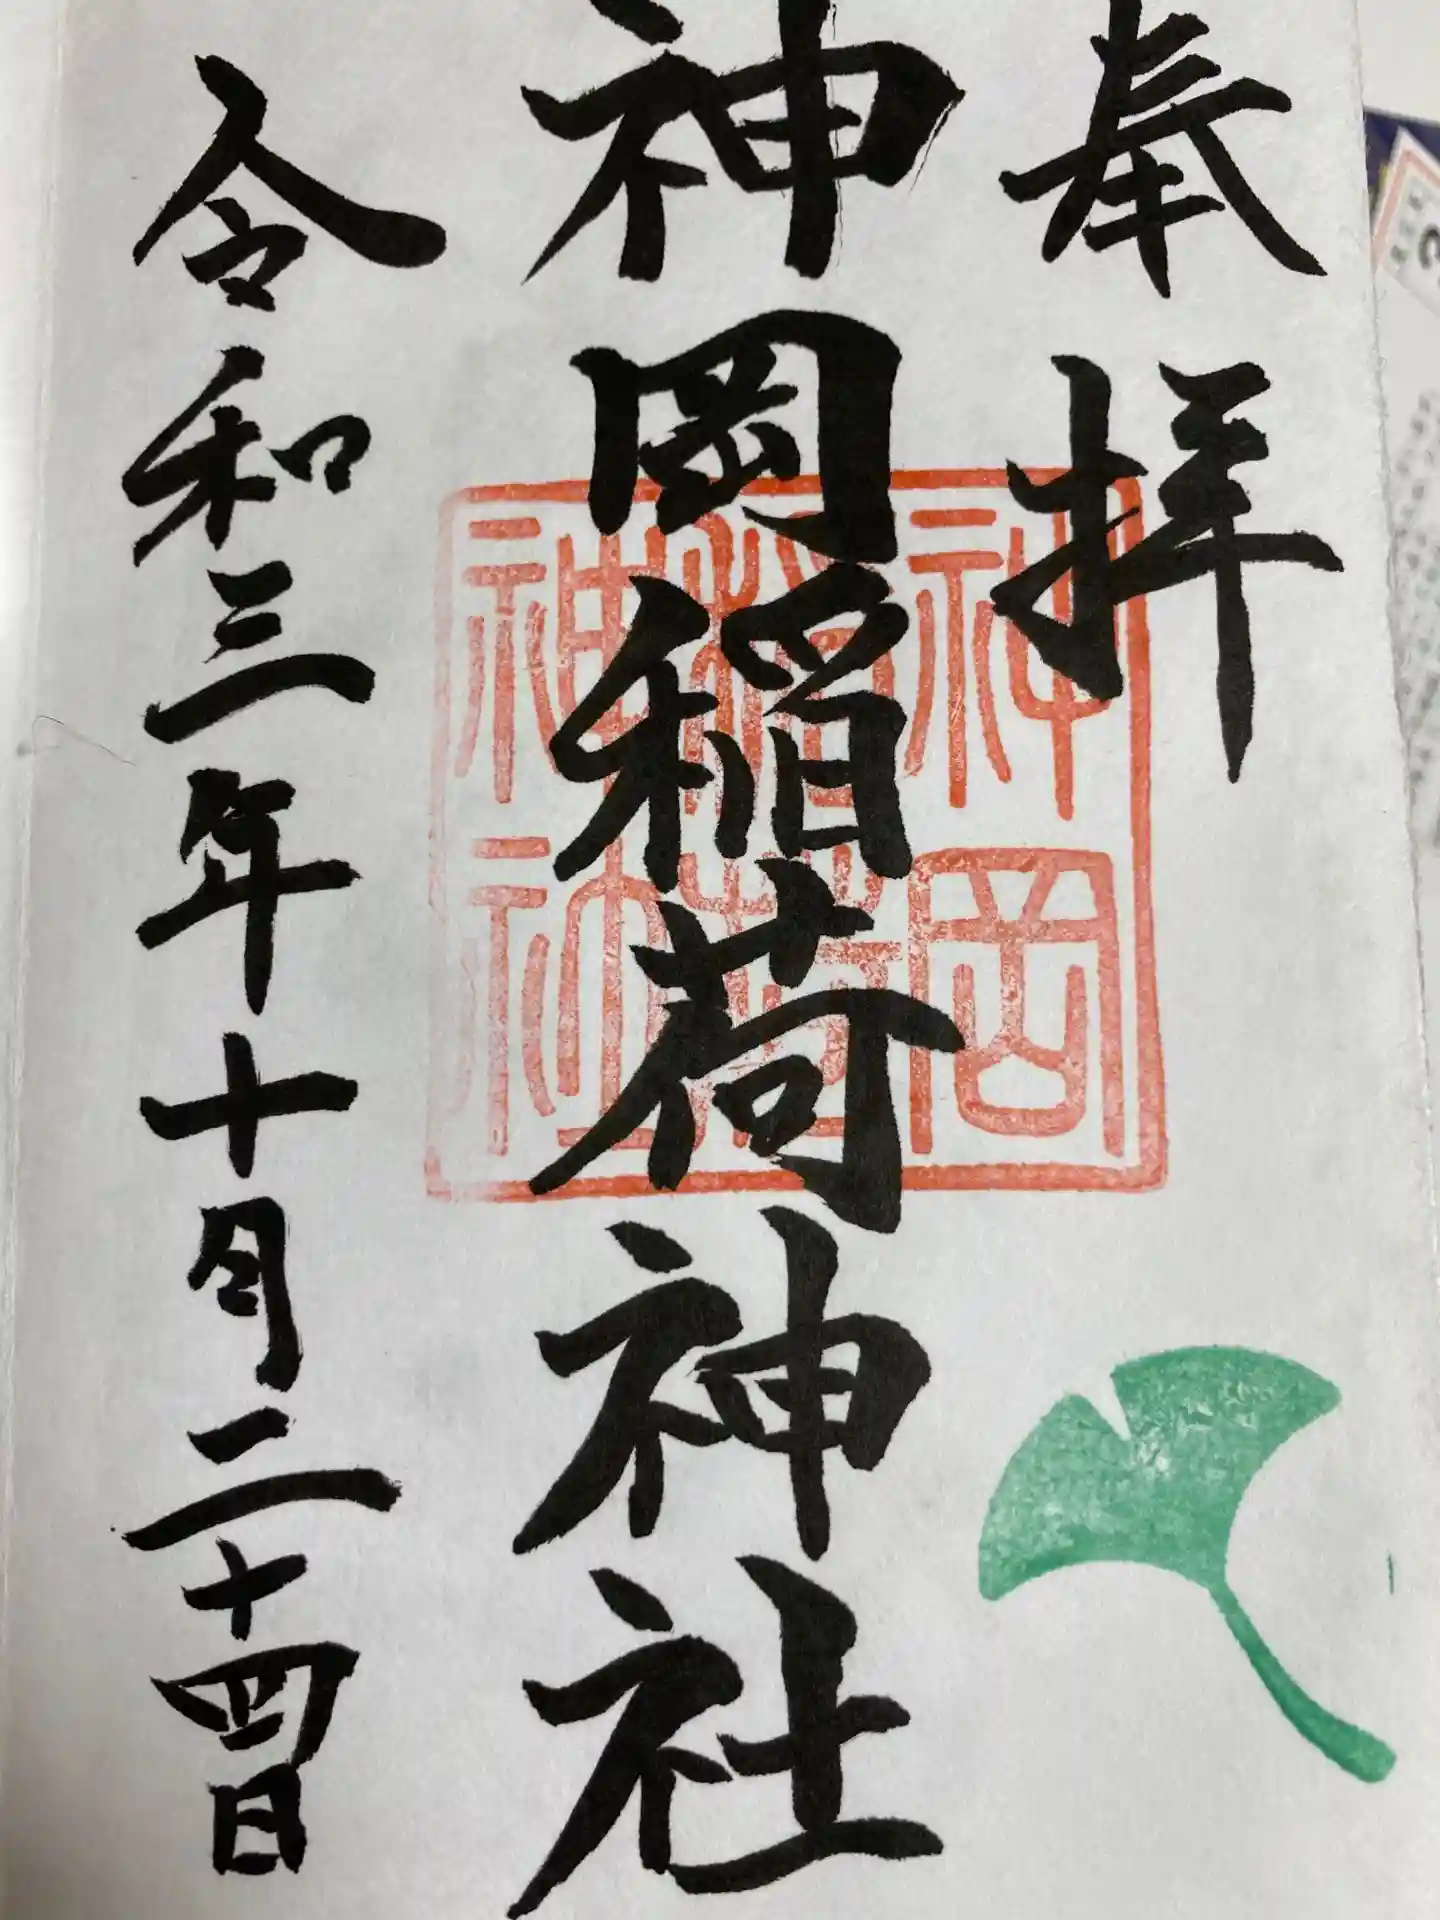 奉拝
神岡稲荷神社
神岡稲荷神社
令和三年十月二十四日